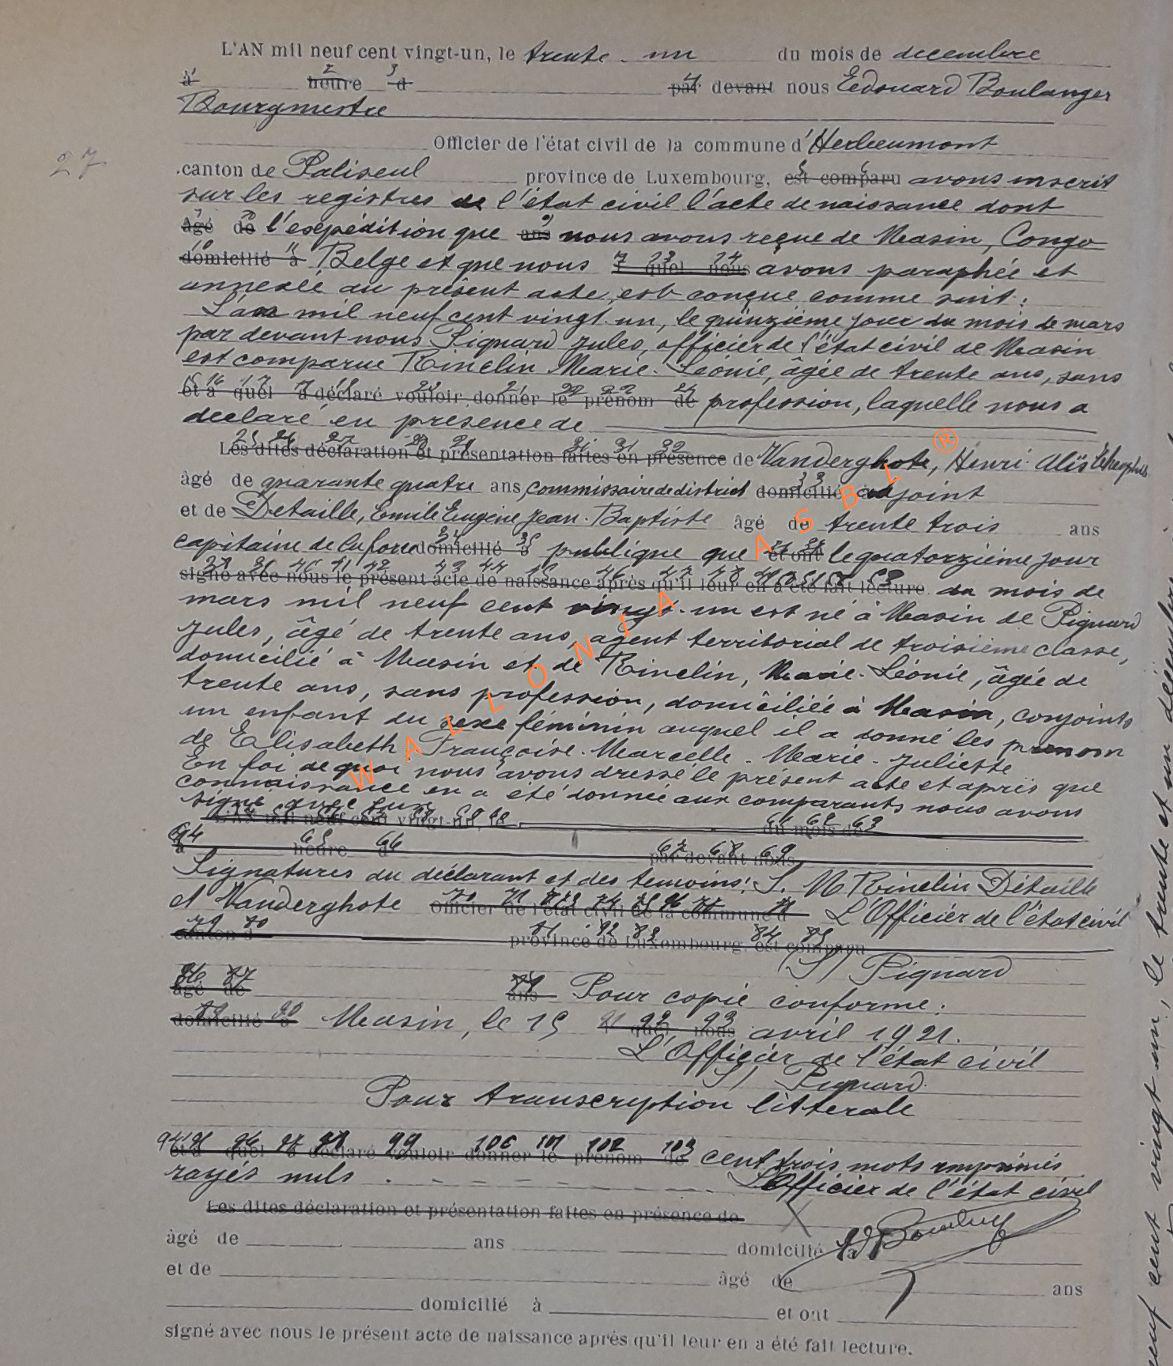 L'AN mil neuf cent vingt-un, le trente un du mois de decembre
à heure d par devant nous Edouard Boulanger
Bourgmestre
Officier de l'état civil de la commune d'Herbeumont
27
canton de Paliseul province de Luxembourg, est comparu avons inscrit
sur les registres de l'état civil l'acte de naissance dont
âgé de l'expédition que ans nous avons reçue de Masin, Congo
domicilié à Belge et que nous quel nous avons paraphée et
annexée au présent acte, est conçue comme suit:
L'an mil neuf cent vingt un, le quinzième jour du mois de mars
par devant nous Pignard Jules, officier de l'état civil de Masin
est comparue Rinclin Marie-Léonie, âgée de trente ans, sans
et à quel a déclaré vouloir donner le prénom de profession, laquelle nous a
déclaré en présence de
Les dites déclaration et présentation faites en présence de Vanderghote, Henri Aloïs
âgé de quarante quatre ans commissaire de district domicilié adjoint
et de Detaille, Emile Eugène Jean-Baptiste âgé de trente trois ans
capitaine de la force domicilié à publique que et ont le quatorzième jour
signé avec nous le présent acte de naissance après qu'il leur en a été fait lecture du mois de
mars mil neuf cent vingt-un est né à Masin de Pignard
Jules, âgé de trente ans, agent territorial de troisième classe,
domicilié à Masin et de Rinclin, Marie-Léonie, âgée de
trente ans, sans profession, domiciliée à Masin, conjoints
un enfant du sexe féminin auquel il a donné les prenom
de Elisabeth Françoise-Marcelle-Marie-Juliette
En foi de quoi nous avons dressé le présent acte et après que
connaissance en a été donnée aux comparants nous avons
signé avec eux
L'AN mil neuf cent vingt-un, le du mois de
à heure d par devant nous
Signatures du déclarant et des temoins: S. M Rinclin Détaille
et Vanderghote Officier de l'état civil de la commune d L'Officier de l'état civil
canton d province de Luxembourg, est comparu
S/ Pignard
âgé de ans Pour copie conforme:
domicilié à Masin, le 15 quel nous avril 1921.
L'Officier de l'état civil
S/ Pignard
Pour transcription littérale
et à quel a déclaré vouloir donner le prénom de cent trois mots imprimés
rayés nuls L'Officier de l'état civil
Les dites déclaration et présentation faites en présence de
âgé de ans domicilié à
et de âgé de ans
domicilié à et ont
signé avec nous le présent acte de naissance après qu'il leur en a été fait lecture.
WALLONIA ASBL ®
neuf cent vingt un, le trente et un décembre